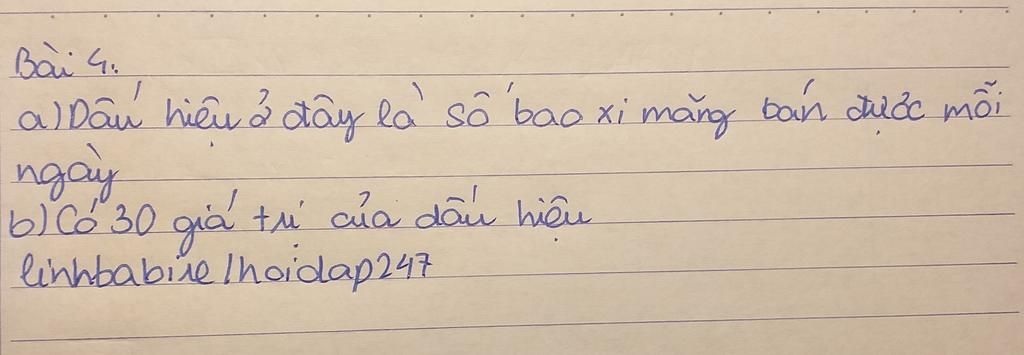 Bài 4.
a) Dấu hiệu ở đây là số bao xi măng bán được mỗi
ngày
b) Có 30 giá trị của dấu hiệu
linhbabie/hoidap247